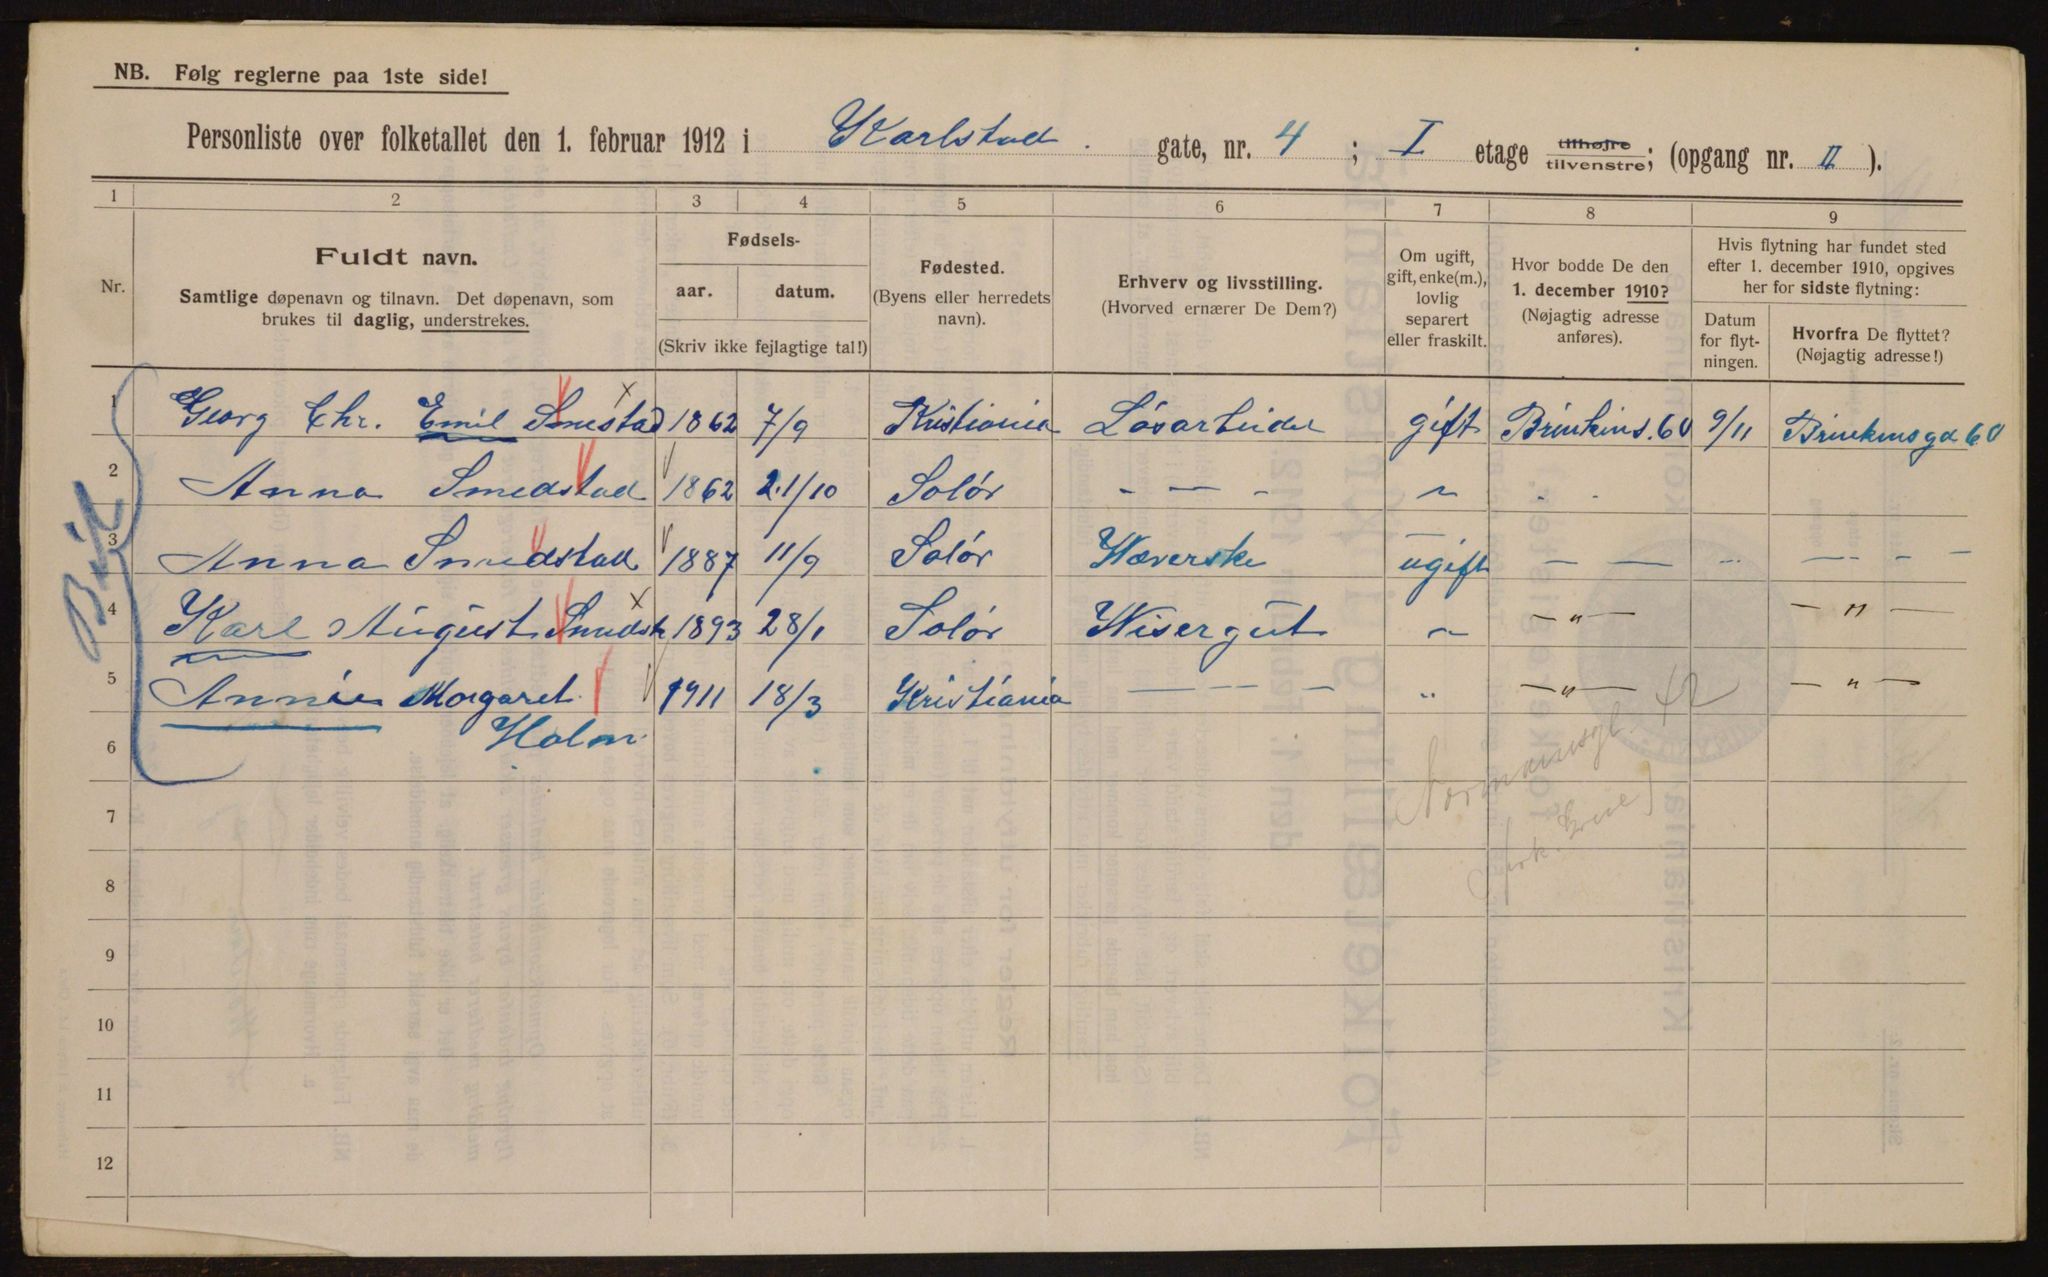 NB. Følg reglerne paa 1ste side!
Personliste over folketallet den 1. februar 1912 i Karlstad gate, nr. 4 ; I etage tilhøjre tilvenstre; (opgang nr. II ).
1 2 3 4 5 6 7 8 9
Nr.
Fuldt navn.
Samtlige døpenavn og tilnavn. Det døpenavn, som
brukes til daglig, understrekes.
Fødsels-
aar. datum.
(Skriv ikke fejlagtige tal!)
Fødested.
(Byens eller herredets
navn).
Erhverv og livsstilling.
(Hvorved ernærer De Dem?)
Om ugift,
gift, enke(m.),
lovlig
separert
eller fraskilt.
Hvor bodde De den
1. december 1910?
(Nøjagtig adresse
anføres).
Hvis flytning har fundet sted
efter 1. december 1910, opgives
her for sidste flytning:
Datum
for flyt-
ningen.
Hvorfra De flyttet?
(Nøjagtig adresse!)
1 Georg Chr. Emil Smestad x 1862 7/9 Kristiania Løsarbeider gift Brinkins. 60 9/11 Brinkensgd 60
2 Anna Smedstad 1862 21/10 Solør - — - " . .
3 Anna Smedstad 1887 11/9 Solør Wæverske ugift — — - — - -
4 Karl August Smedst x 1893 28/1 Solør Wisergut " —"— —"—
5 Annie Margaret 1911 18/3 Kristiania — - - — " —"— 42 —"—
6 Holm
Normannsgt
7
8
9
10
11
12